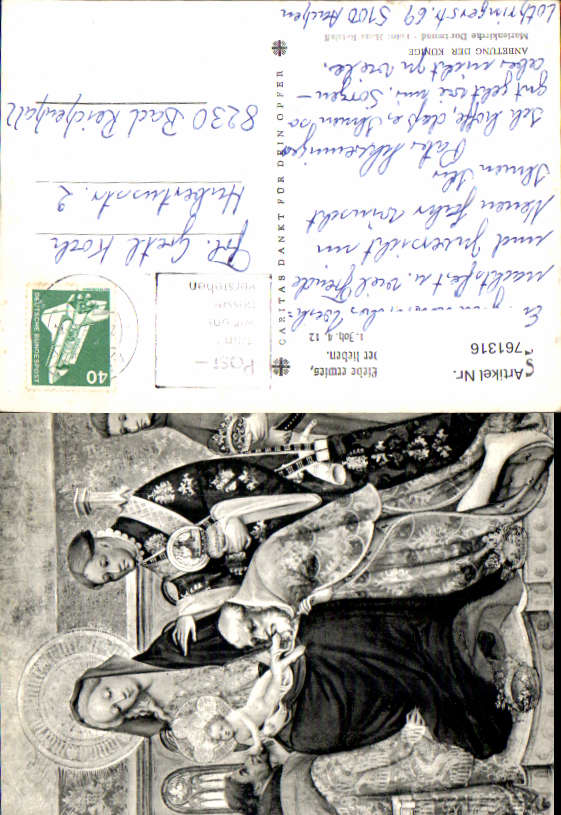 Artikel Nr.
761316
Liebe erwies,
1. Joh. 4, 12
nachtsfest u. viel Freude
und Zuversicht im
Neuen Jahr wünscht
Ihnen Ihr
Ich hoffe, daß es Ihnen so
gut geht wie mir. Sorgen –
aber nicht zu viele.
ANBETUNG DER KÖNIGE
Marienkirche Dortmund - Foto:
Lothringerstr. 69 5100 Aachen
CARITAS DANKT FÜR DEIN OPFER
POST–
verstehen
DEUTSCHE BUNDESPOST
40
Gretl Koch
Hubertusstr. 2
8230 Bad Reichenhall